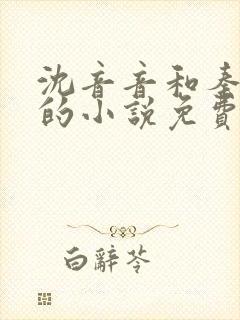 沈音音和秦
的小說免費
白辭苓